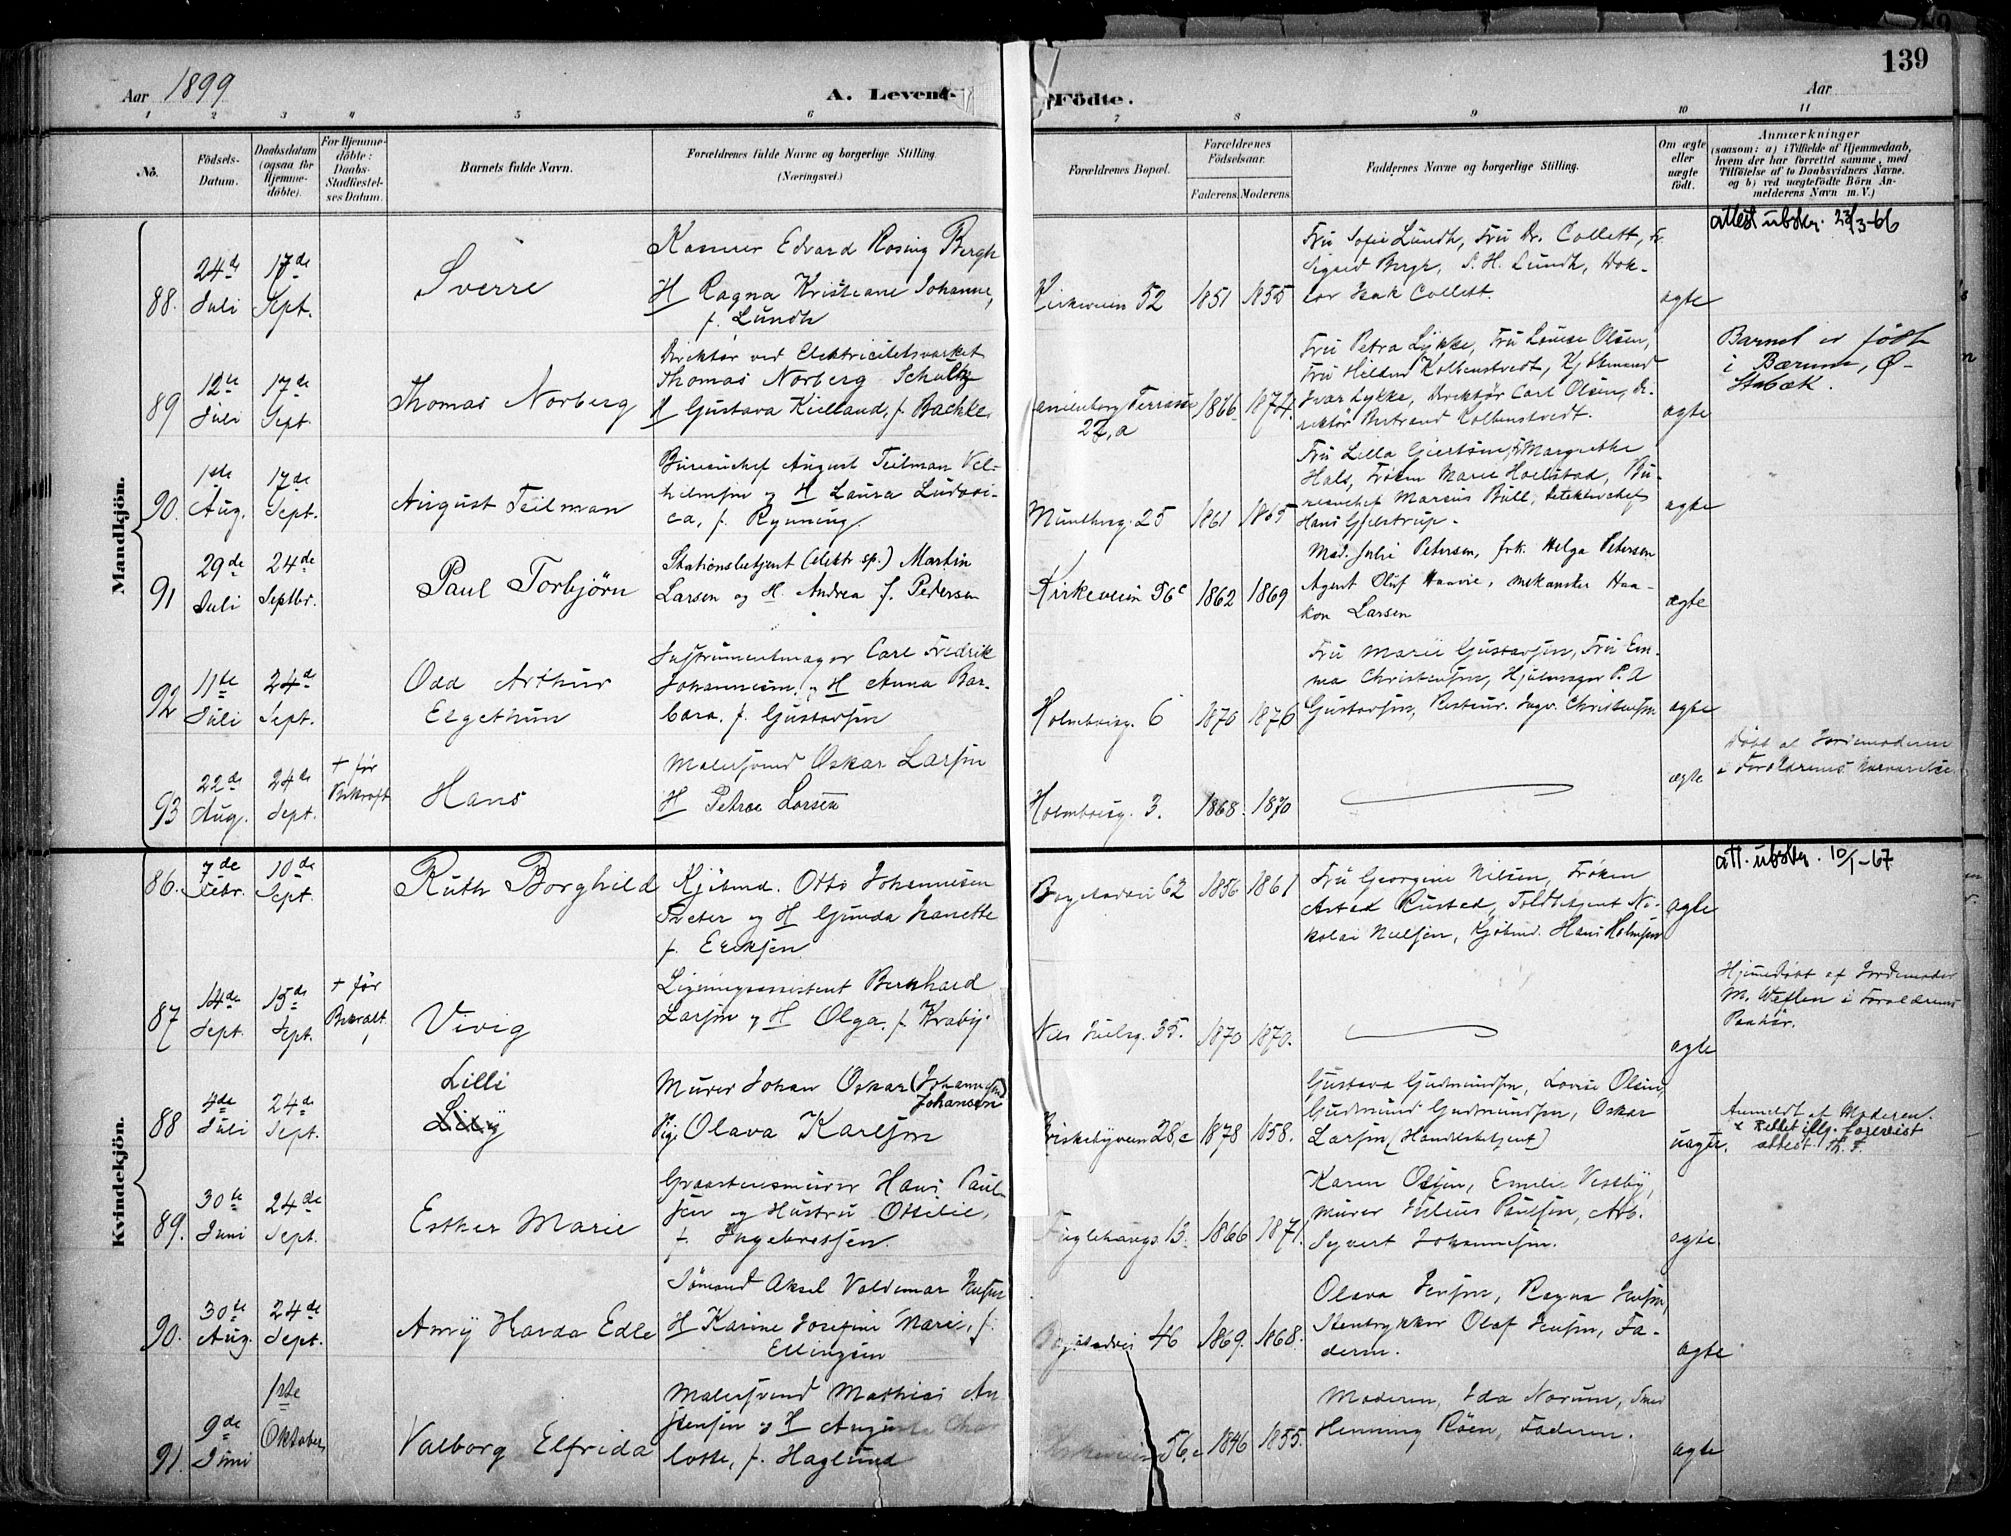 139
Aar 1899
A. Levende
Födte.
Aar
1 2 3 4 5 6 7 8 9 10 11
No.
Födsels-
Datum.
Daabsdatum
(ogsaa for
Hjemme-
döbte).
For Hjemme-
döbte:
Daabs-
Stadfæstel-
ses Datum.
Barnets fulde Navn.
Forældrenes fulde Navne og borgerlige Stilling.
(Næringsvei.)
Forældrenes Bopæl.
Forældrenes
Födselsaar.
Faderens. Moderens.
Faddernes Navne og borgerlige Stilling.
Om ægte
eller
uægte
født.
Anmærkninger
(saasom: a) i Tilfælde af Hjemmedaab,
hvem der har forrettet samme, med
Tilföielse af to Daabsvidners Navne,
og b) ved uægtefödte Börn An-
melderens Navn m. V.)
Mandkjön.
88.
24de
Juli
17de
Sept.
Sverre
Edvard Rosing Bergh
H Ragna Kristiane Johanne,
f. Lundh
Kirkeveien 52
1851
1855
Fru Sofie Lundh, Fru Dr. Collett, Fr.
Sigrid Bergh, S. H. Lundh, Dok-
tor Isak Collett.
ægte
attest utster. 23/3-66
89
12te
Juli
17de
Sept.
Thomas Norberg
Direktør ved Elektricitetsværket
Thomas Norberg Schultz
H Gustava Kielland, f. Bachke
Terrasse
22, a
1866
1874.
Fru Petra Lykke, Fru Louise Olsen,
Fru Hildur Kolbenstvedt, Kjøbmand
Ivar Lykke, Direktør Carl Olsen, Di-
rektør Bertrand Kolbenstvedt.
ægte
Barnet er født
i Bærum, Ø-
Stabæk.
90.
1ste
Aug.
17de
Sept.
August Teilman
Bureauchef August Teilman Vel-
helmsen og H Laura Ludovi-
ca, f. Rynning.
Munthesg. 25
1861
1865
Fru Lilla Giertsen, Fr Margrethe
Hals, Frøken Marie Hoelstad, Bu-
reauchef Marcus Bull, Detektivchef
Hans Gjelstrup.
ægte
91
29de
Juli
24de
Septbr.
Paul Torbjörn
Stationsbetjent (elektr. sp.) Martin
Larsen og H. Andrea f. Pedersen
Kirkeveien 56c
1862
1869
Mad. Julie Petersen, frk. Helga Petersen
Agent Oluf Haavie, mekaniker Haa-
kon Larsen
ægte
92
11te
Juli
24de
Sept.
Odd Arthur
Elgethun
Instrumentmager Carl Fredrik
Johannesen, og H Anna Bar-
bara, f. Gustavsen
Holmboesg. 6
1870
1876
Fru Marie Gustavsen, Fru Em-
ma Christensen, Hjulmager P. A
Gustavsen, Ingv. Christensen
ægte
93
22de
Aug.
24de
Sept.
+ før
Bekræft
Hans
Malersvend Oskar Larsen
H Petrea Larsen
Holmboesg. 3.
1868.
1870
ægte
Døbt af Jordemoderen
i Forældrenes Nærværelse
Kvindekjön.
86.
7de
Febr.
10de
Sept.
Ruth Borghild
Kjøbmd. Otto Johannesen
Sveter og H Gunda Jeanette
f. Eriksen
Bogstadvei 62
1856
1861
Fru Georgine Nilsen, Frøken
Astrid Rustad, Toldbetjent Ni-
kolai Nielsen, Kjøbmd. Hans Holmsen
ægte
att. utster. 10/1-67
87
14de
Sept.
15de
Sept.
+ før
Bekræft.
Vivig
Ligningsassistent Bernhard
Larsen og H Olga, f. Kraby.
Niels Juelsg. 35.
1870
1870.
ægte
Hjemmedøbt af Jordemoder
M. Weflen i Forældrenes
Paahør.
88
4de
Juli
24de
Sept.
Lilli
Lilly
Murer Johan Oskar (Johannesen)
Johansen
Pige Olava Karlsen
Briskebyveien 28,c
1878
1858.
Gustava Gudmundsen, Lovise Olsen,
Gudmund Gudmundsen, Oskar
Larsen (Handelsbetjent)
uægte.
Anmeldt af Moderen.
x Rettet iflg. forevist
attest. Th. F.
89.
30te
Juni
24de
Sept.
Esther Marie
Graastensmurer Hans Paul-
sen og Hustru Ottilie,
f. Ingebretsen.
Fuglehaugs. 13.
1866
1871.
Karen Olsen, Emilie Vestby,
Murer Julius Paulsen, Arb.
Syvert Johannesen.
ægte.
90.
30te
Aug.
24de
Sept.
Amy Harda Edle
Sømand Aksel Valdemar Jensen
H Karine Josefine Marie, f.
Ellingsen
Bogstadvei 46
1869.
1868.
Olava Jensen, Ragna Jensen,
Stentrykker Olaf Jensen, Fa-
deren.
ægte
91.
9de
Juni
1ste
Oktober
Valborg Elfrida
Malersvend Mathias An-
dersen og H Augusta Char
lotte, f. Haglund
Kirkeveien 56,c
1846
1855.
Moderen, Ida Norum, Smed
Henning Røen, Faderen.
ægte